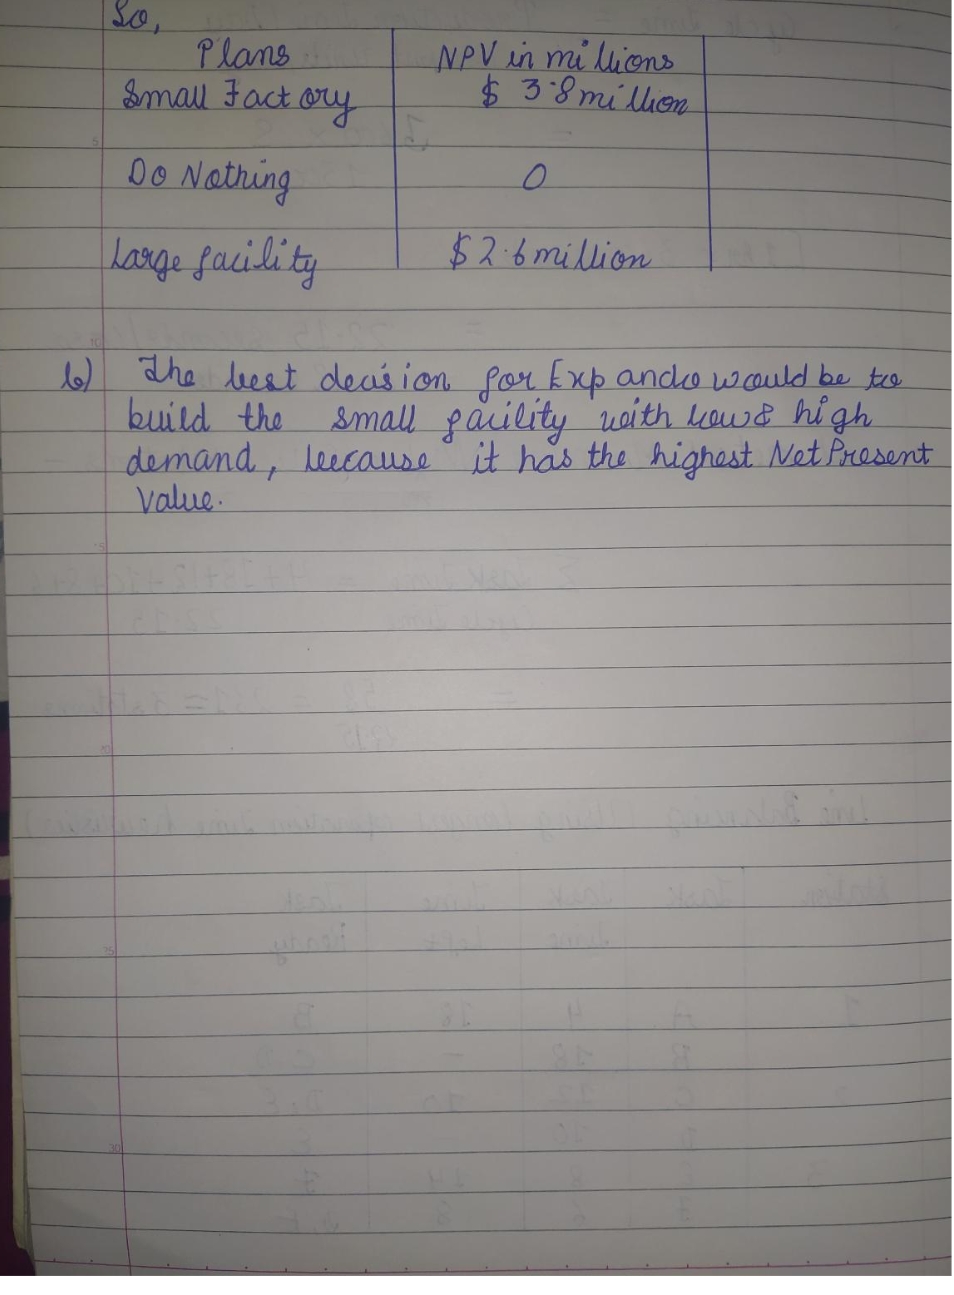 So,
Plans NPV in millions
Small Factory $ 3.8 million
Do Nothing 0
Large facility $2.6 million
b) The best decision for Expando would be to
build the small facility with low & high
demand, because it has the highest Net Present
Value.